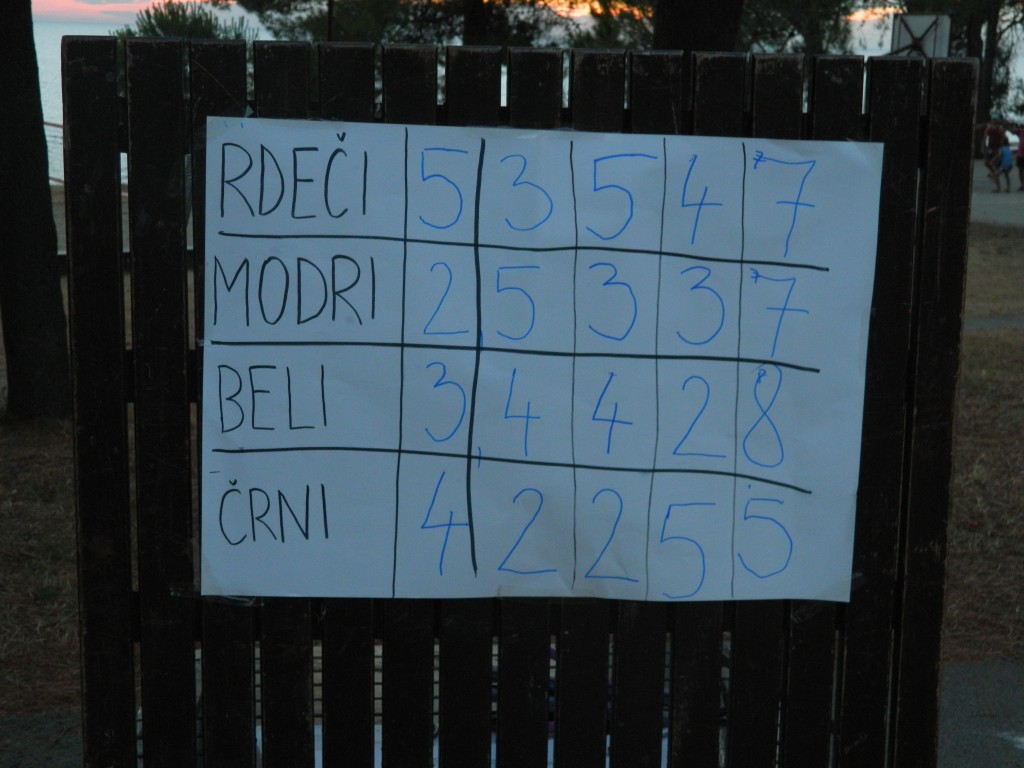 RDEČI 5 3 5 4 7
MODRI 2 5 3 3 7
BELI 3 4 4 2 8
ČRNI 4 2 2 5 5